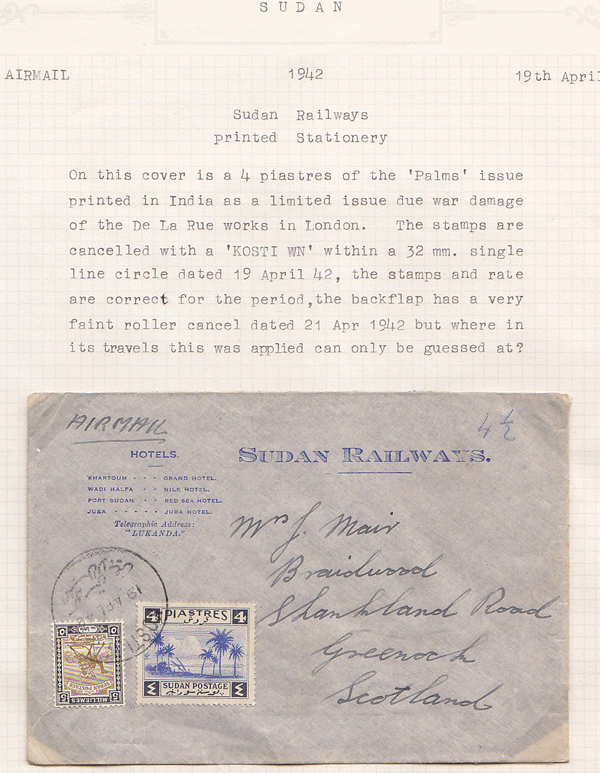 SUDAN
AIRMAIL 1942 19th April
Sudan Railways
printed Stationery
On this cover is a 4 piastres of the 'Palms' issue
printed in India as a limited issue due war damage
of the De La Rue works in London. The stamps are
cancelled with a 'KOSTI WN' within a 32 mm. single
line circle dated 19 April 42, the stamps and rate
are correct for the period,the backflap has a very
faint roller cancel dated 21 Apr 1942 but where in
its travels this was applied can only be guessed at?
AIRMAIL
4 ½
HOTELS.
SUDAN RAILWAYS.
KHARTOUM - - - GRAND HOTEL.
WADI HALFA - - NILE HOTEL.
PORT SUDAN - - RED SEA HOTEL.
JUBA - - - - - JUBA HOTEL.
Telegraphic Address:
"LUKANDA."
Mrs J. Mair
Braidwood
Shankland Road
Greenock
Scotland
KOSTI
4 PIASTRES 4
قروش
4 SUDAN POSTAGE 4
5 MILLIEMES 5